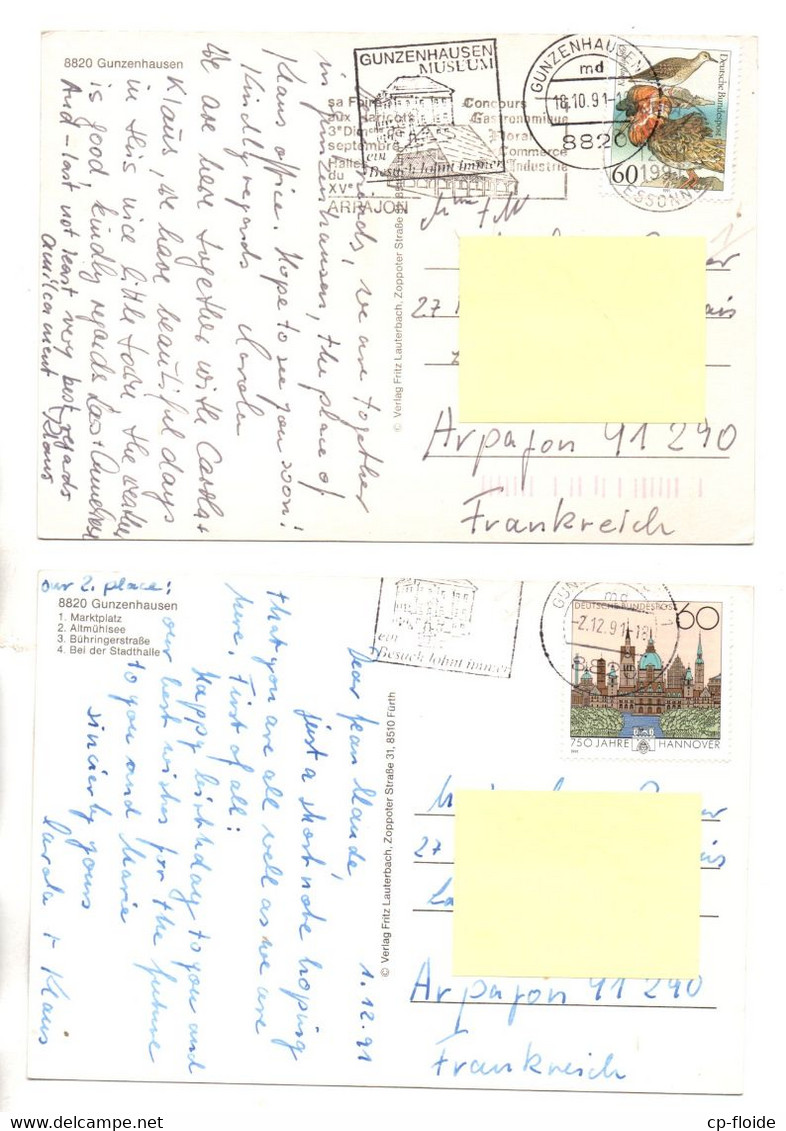 8820 Gunzenhausen
GUNZENHAUSEN
MUSEUM
ein
Besuch lohnt immer
sa Foire
aux haricots
3e Dim
septembre
Halles
du
XVe
ARPAJON
Concours
Gastronomique
Floral
Commerce
Industrie
GUNZENHAUSEN
md
18.10.91-1
8820
Deutsche Bundespost
60
ESSONNE
friends, we are together
in Gunzenhausen, the place of
Klaus office. Hope to see you soon!
Kindly regards Carola
We are here together with Carola +
Klaus, we have beautiful days
in this nice little town the weather
is good, kindly regards
And - last not least very best regards
Klaus
© Verlag Fritz Lauterbach, Zoppoter Straße
27
Arpajon 91 290
Frankreich
our 2. place:
8820 Gunzenhausen
1. Marktplatz
2. Altmühlsee
3. Bühringerstraße
4. Bei der Stadthalle
ein
Besuch lohnt immer
md
-2.12.91-18
DEUTSCHE BUNDESPOST
60
750 JAHRE HANNOVER
1.12.91
Dear Jean Claude,
just a short note hoping
that you are all well as we are
here. First of all:
Happy birthday to you and
our best wishes for the future
to you and Marie
sincierly yours
Carola + Klaus
© Verlag Fritz Lauterbach, Zoppoter Straße 31, 8510 Fürth
27
Arpajon 91 290
Frankreich
cp-floide